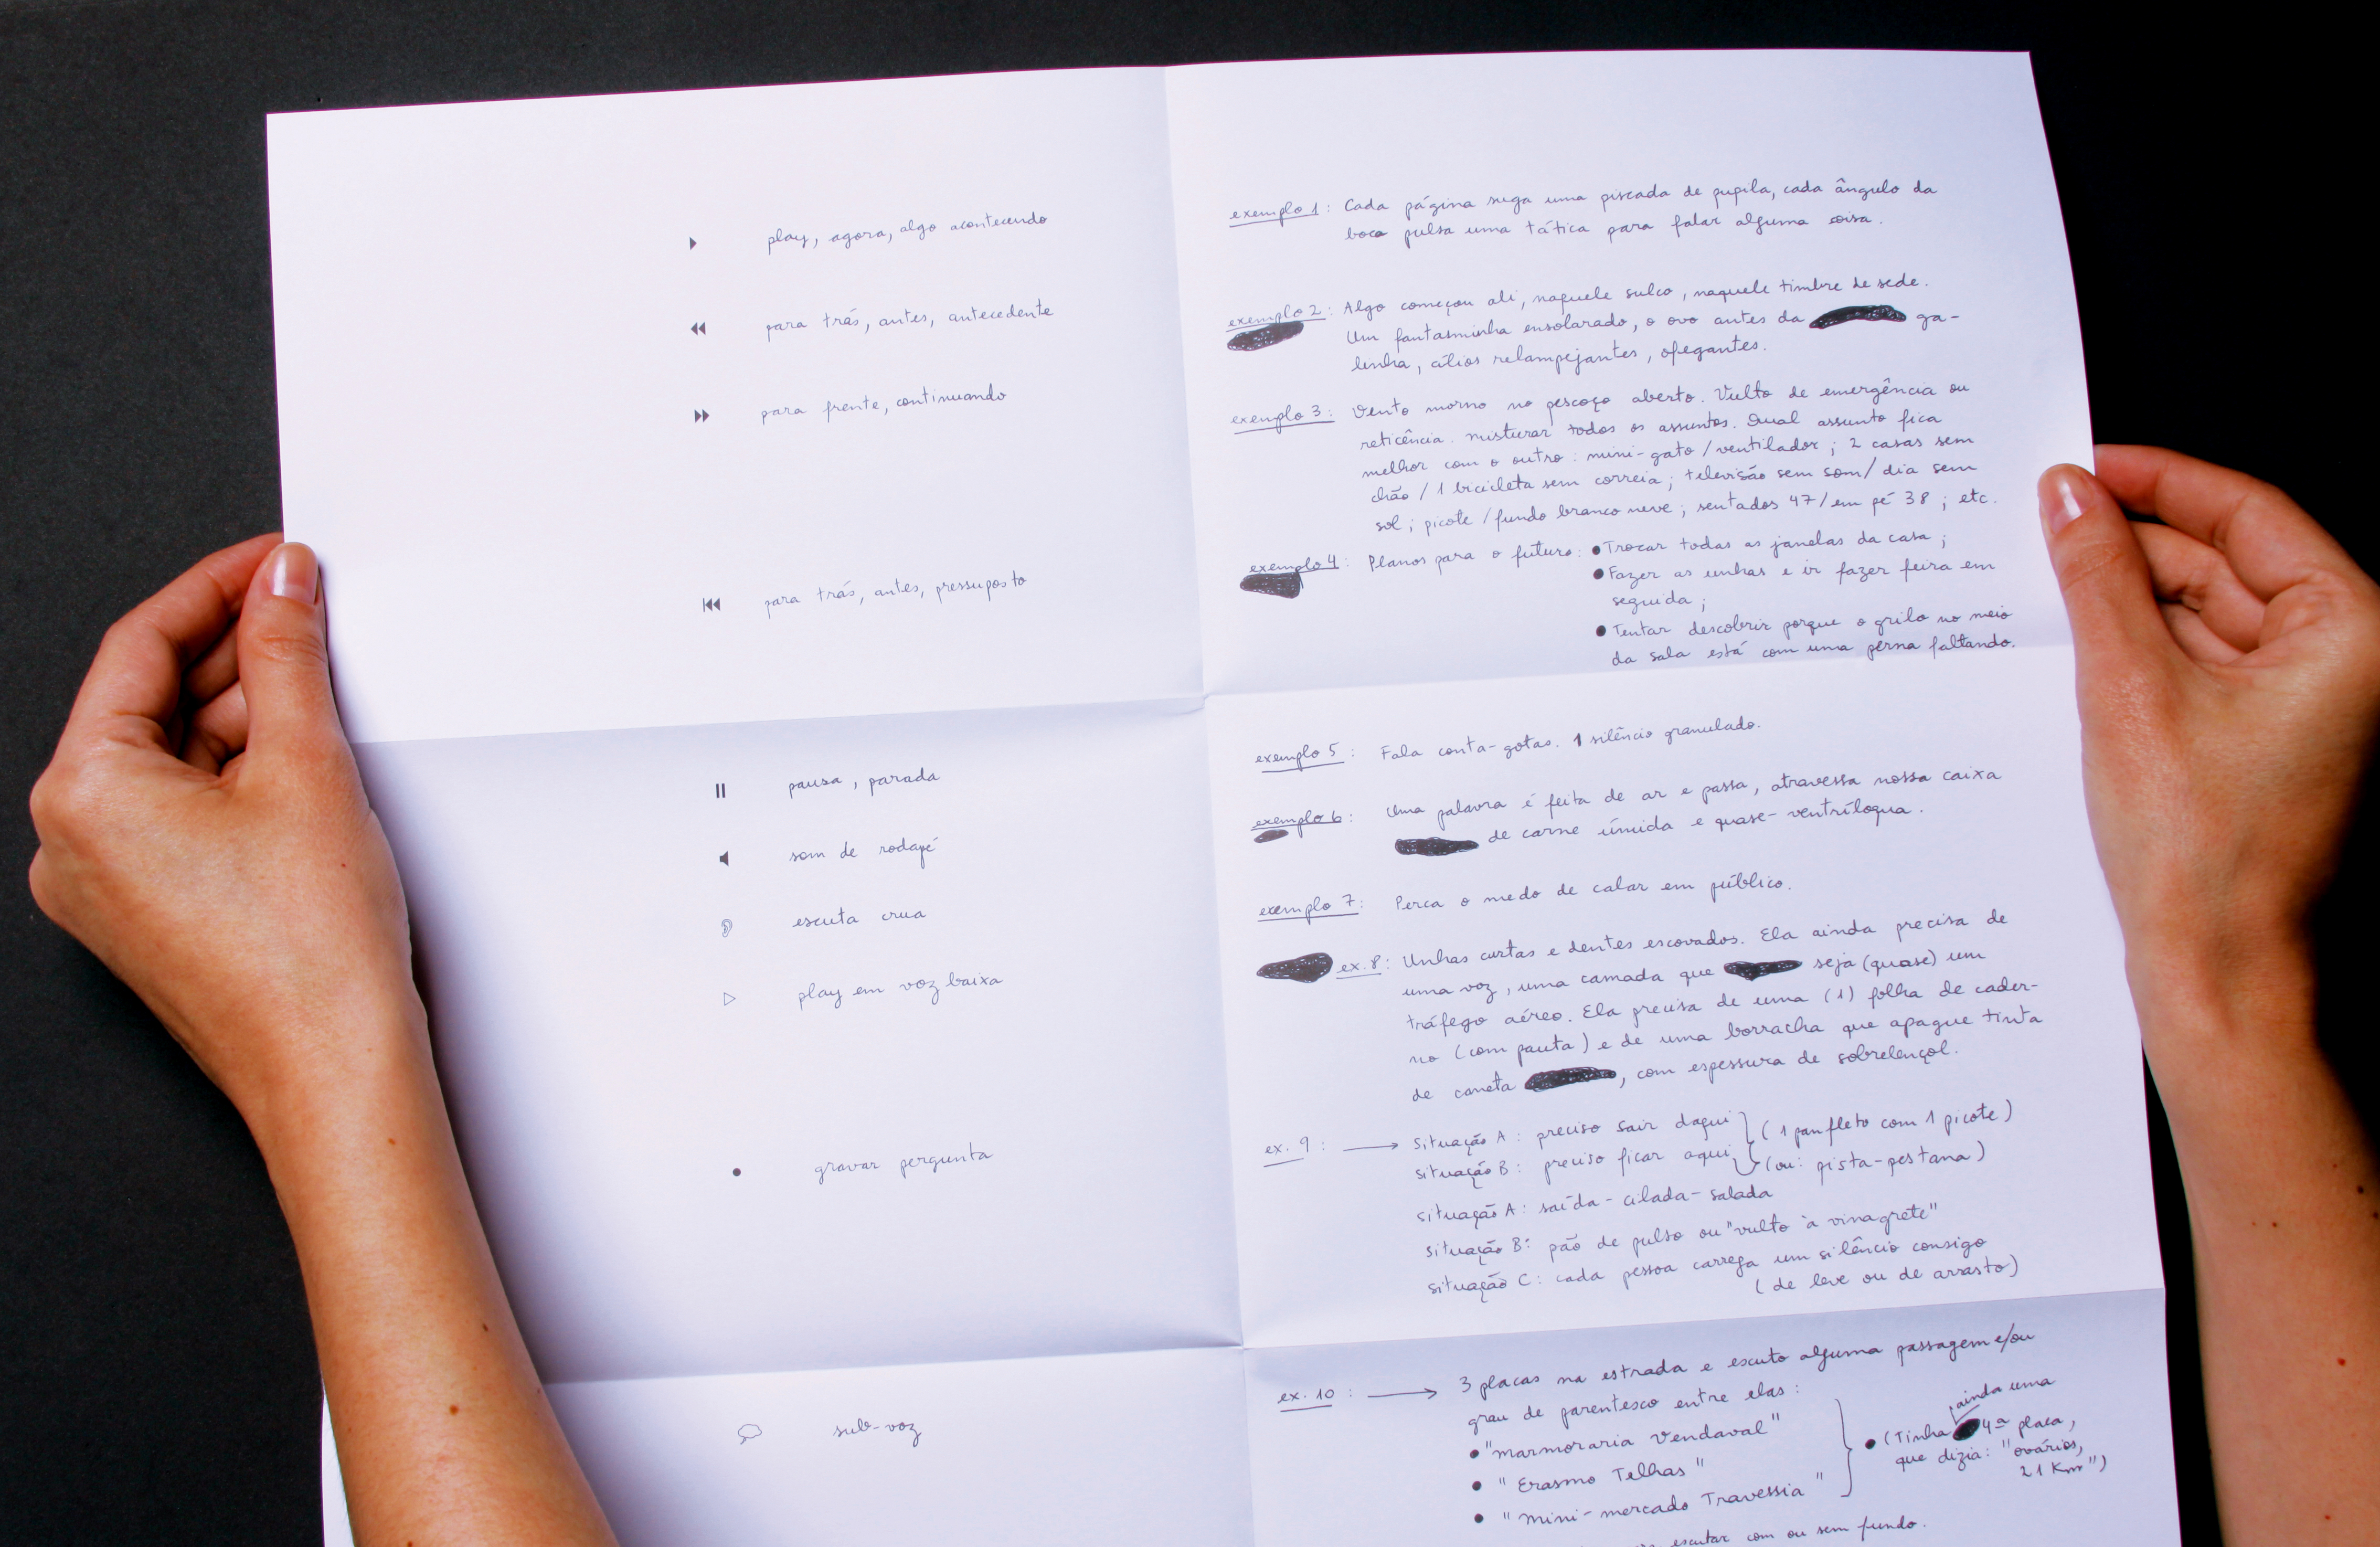 play, agora, algo acontecendo
para trás, antes, antecedente
para frente, continuando
para trás, antes, pressuposto
pausa, parada
som de rodapé
escuta crua
play em voz baixa
gravar pergunta
sub-voz
exemplo 1: Cada página suga uma piscada de pupila, cada ângulo da
boca pulsa uma tática para falar alguma coisa.
exemplo 2: Algo começou ali, naquele sulco, naquele timbre de sede.
Um fantasminha ensolarado, o ovo antes da ga-
linha, cílios relampejantes, ofegantes.
exemplo 3: Vento morno no pescoço aberto. Vulto de emergência ou
reticência. misturar todos os assuntos. Qual assunto fica
melhor com o outro: mini-gato/ventilador; 2 casas sem
chão / 1 bicicleta sem correia; televisão sem som/ dia sem
sol; picote/fundo branco neve; sentados 47/em pé 38; etc.
exemplo 4: Planos para o futuro: • Trocar todas as janelas da casa;
• Fazer as unhas e ir fazer feira em
seguida;
• Tentar descobrir porque o grilo no meio
da sala está com uma perna faltando.
exemplo 5: Fala conta-gotas. 1 silêncio granulado.
exemplo 6: Uma palavra é feita de ar e passa, atravessa nossa caixa
de carne úmida e quase-ventríloqua.
exemplo 7: Perca o medo de calar em público.
ex. 8: Unhas curtas e dentes escovados. Ela ainda precisa de
uma voz, uma camada que seja (quase) um
tráfego aéreo. Ela precisa de uma (1) folha de cader-
no (com pauta) e de uma borracha que apague tinta
de caneta, com espessura de sobrelençol.
ex. 9: → Situação A: preciso sair daqui } (1 panfleto com 1 picote)
situação B: preciso ficar aqui } (ou: pista-pestana)
situação A: saída-cilada-salada
situação B: pão de pulso ou "vulto à vinagrete"
situação C: cada pessoa carrega um silêncio consigo
(de leve ou de arrasto)
ex. 10: → 3 placas na estrada e escuto alguma passagem e/ou
grau de parentesco entre elas:
• "marmoraria Vendaval"
• "Erasmo Telhas"
• "mini-mercado Travessia"
• (Tinha ainda uma 4ª placa,
que dizia: "ovários,
21 Km")
escutar com ou sem fundo.